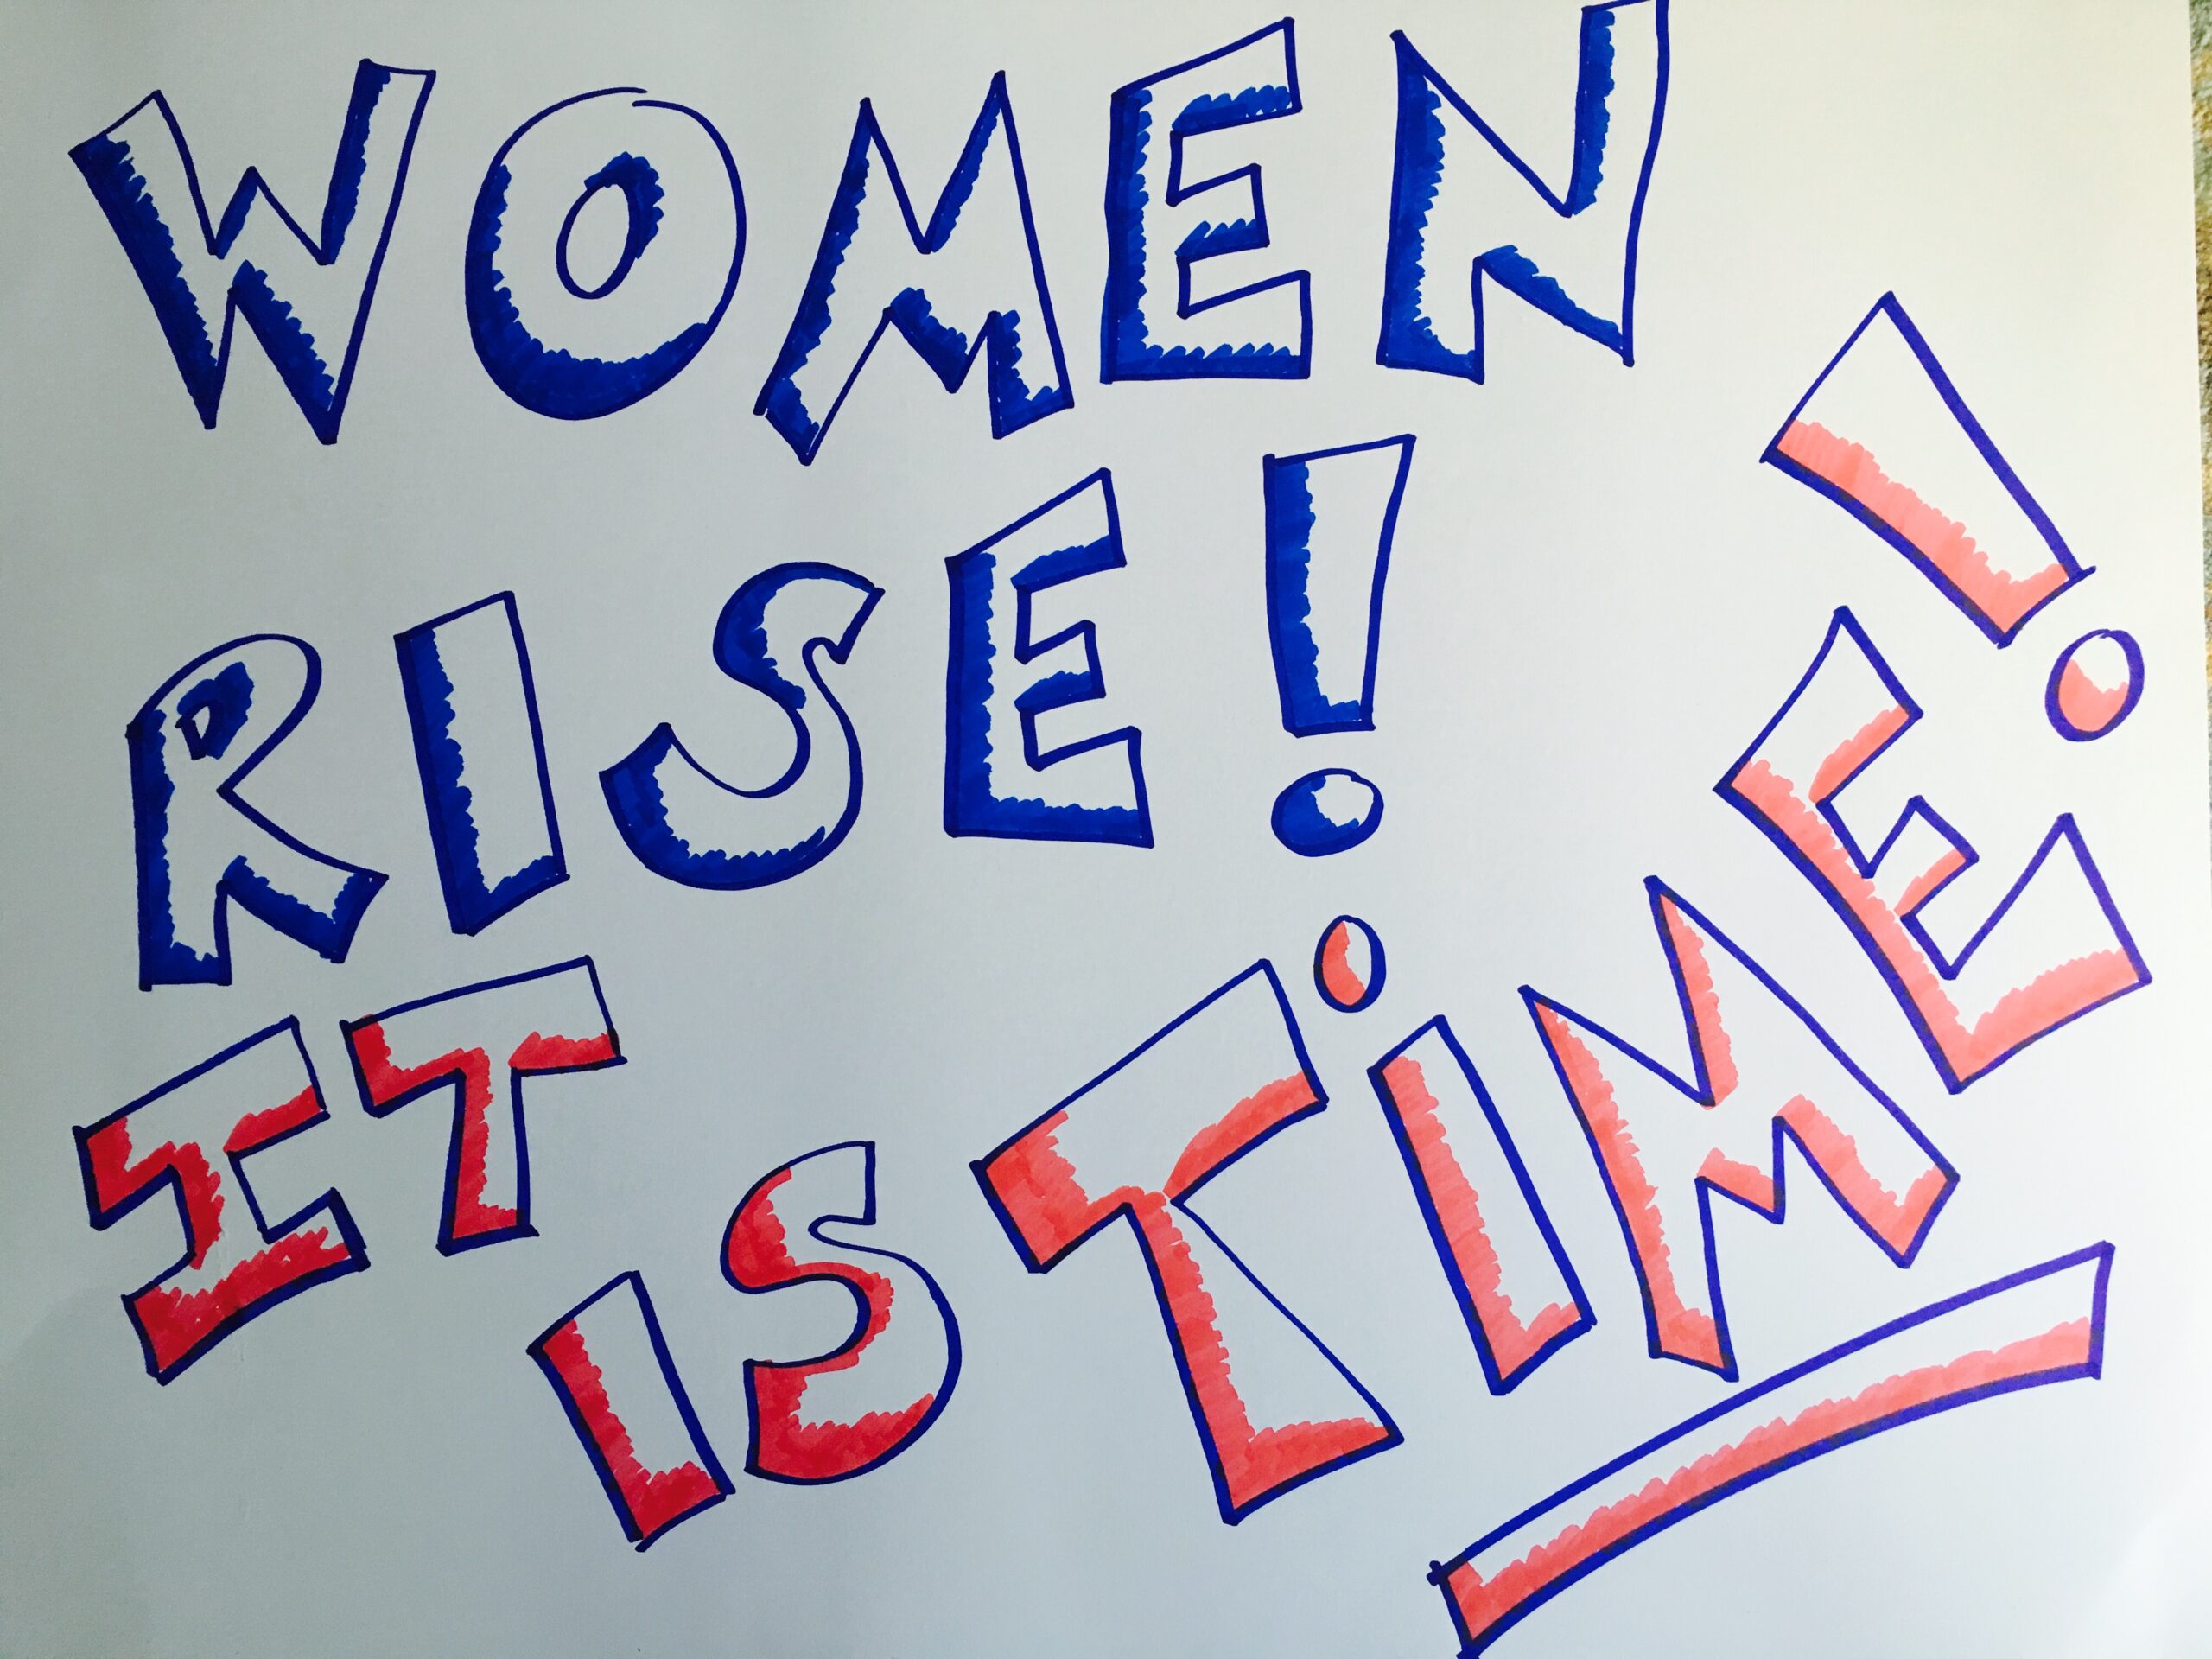 WOMEN
RISE!
IT
IS TiME!